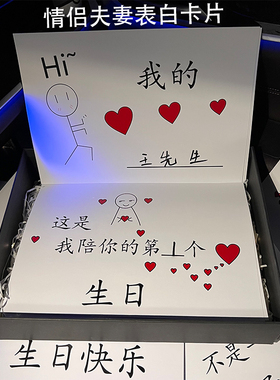 情侣夫妻表白卡片
Hi~
我的
王先生
这是
我陪你的第1个
生日
生日快乐
不是